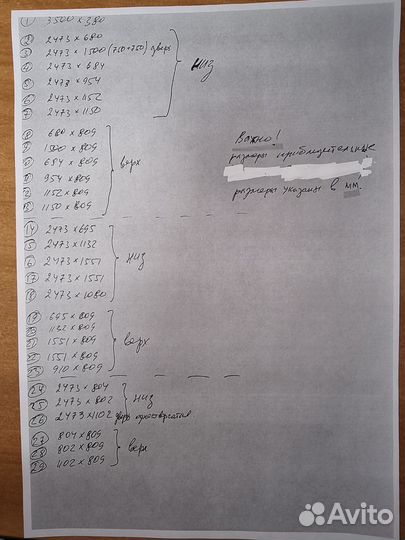 ① 3500 x 380
② 2473 x 680
③ 2473 x 1500 (750+750) дверь
④ 2473 x 684
⑤ 2473 x 954
⑥ 2473 x 1152
⑦ 2473 x 1150
низ
⑧ 680 x 809
1500 x 809
684 x 809
954 x 809
1152 x 809
1150 x 809
верх
Важно!
размеры приблизительные
размеры указаны в мм.
⑭ 2473 x 695
2473 x 1132
2473 x 1551
⑰ 2473 x 1551
⑱ 2473 x 1080
низ
⑲ 695 x 809
1132 x 809
1551 x 809
1551 x 809
910 x 809
верх
㉔ 2473 x 804
㉕ 2473 x 802
㉖ 2473 x 1102 дверь одностворчатая
низ
㉗ 804 x 809
㉘ 802 x 809
㉙ 1102 x 809
верх
Avito